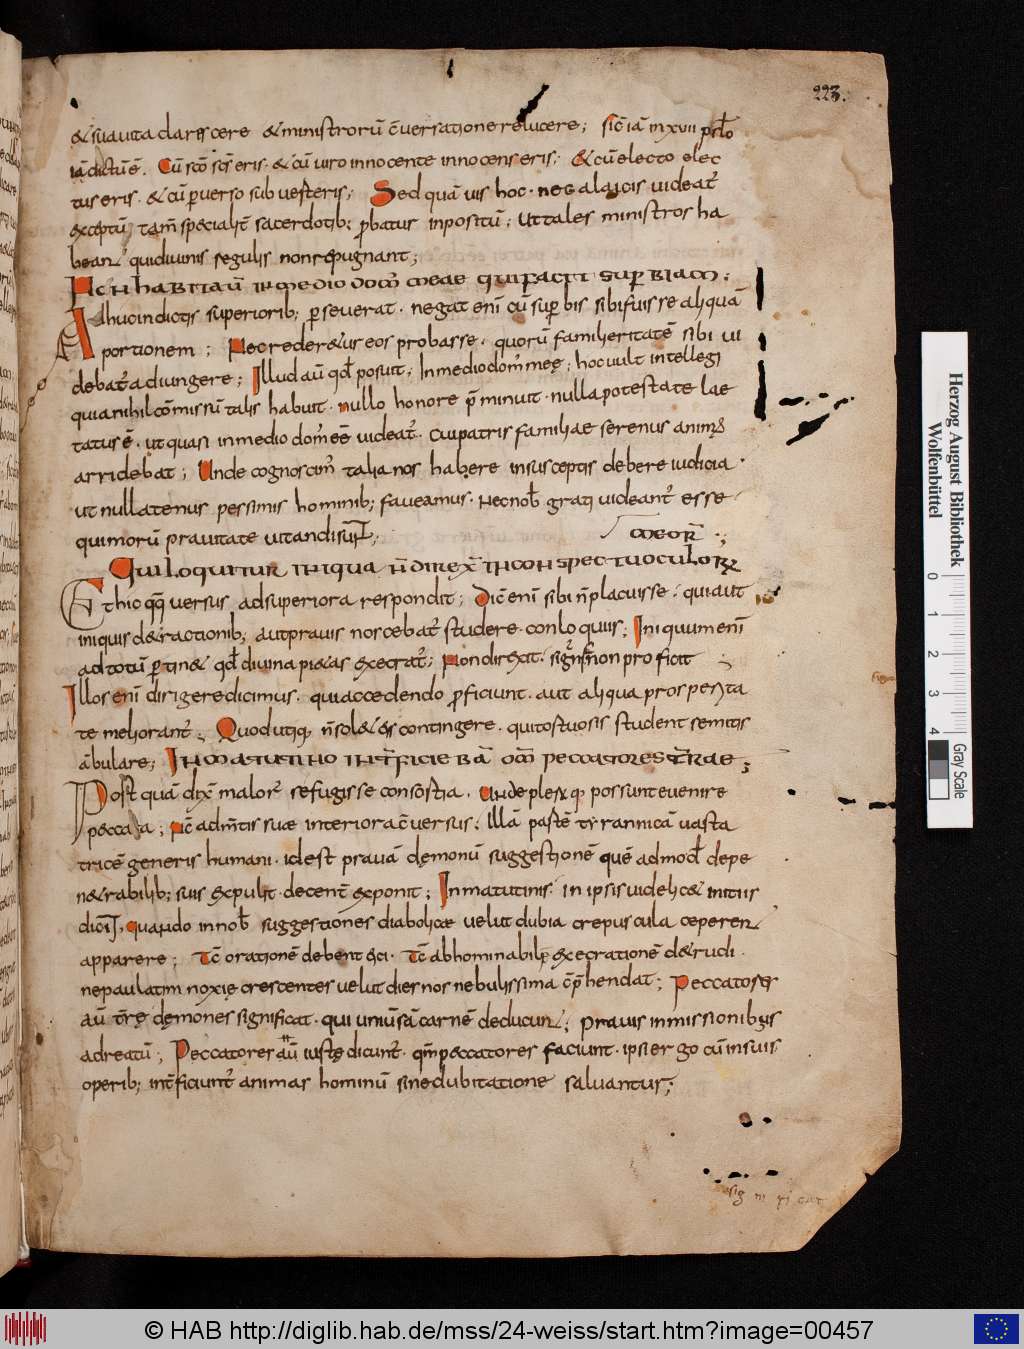 223.
& sua uita clarescere & ministrorū c̄uersatione relucere; sic̄ iā in xvii psal̄mo
iā dictū ē. Cū sc̄o sc̄s eris. & cū uiro innocente innocens eris; & cū electo elec
tus eris. & cū ꝑuerso subuerteris; Sed quāuis hoc. nec a laicis uideat᷑
exceptū; tam̄ specialit̄ sacerdotib; ꝓbatus inpositū; Ut tales ministros ha
beant qui diuinis regulis non repugnant;
Nc̄ n̄ habitau̅ in medio dom᷒ meae qui facit superbiam;
Adhuc in dictis superiorib; ꝑseuerat. negat enī cū superbis sibi fuisse aliquā
portionem; Nec crederetis eos probasse. quorū familieritatē sibi ui
debat᷑ adiungere; Illud aū qđ posuit; In medio dom᷒ meę; hoc uult intellegi
quia nihil cōmissū talis habuit. nullo honore p̄minuit. nulla potestate lae
tatus ē. ut quasi in medio dom᷒ eē uideat᷑. cui patris familiae serenus anim᷒
arridebat; Unde cognoscim᷒ talia nos habere in susceptis debere iudicia.
ut nullatenus pessimis hominib; faueamus. Ne nob̄ grati uideant᷑ esse
quimorū prauitate uitandi sunt;
meor̄.;
Qui loquitur iniqua n̄ direx̄ in conspectu oculorꝝ
Et hic qq̨ uersus ad superiora respondit; Dic̄ enī sibi n̄ placuisse; qui aut
iniquis detractionib; aut prauis noscebat᷑ studere conloquiis; Iniquum enī
ad totū ꝑtinet qđ diuina pietas execrat᷑; Non direxit. significat non proficit
Illos enī dirigere dicimus. qui accedendo ꝓficiunt. aut aliqua prosperita
te meliorant᷑; Quod utiq̨ n̄ solet eis contingere. qui tortuosis student semitis
ābulare; In matutino int̄ficiebā om̄ peccatores t̄rae;
Postquā dix̄ malor᷑ se fugisse consortia. unde plerq̨ possunt euenire
peccata; nc̄ ad m̄tis suae interiora c̄uersus; Illā pastē tyrannicā uasta
tricē generis humani. id est prauā dęmonū suggestionē quē admođ depe
netrabilib; suis expulit. decent̄ exponit; In matutinis. in ipsis uidelicet initiis
dicit, quando in nob̄ suggestiones diabolicae uelut dubia crepuscula ceperent
apparere; Tc̄ orationē debent sci. Tc̄ abhominabilę execrationē detrudi.
ne paulatim noxię crescentes uelut dies nos nebulissima c̄p̄hendat; Peccatoses
aū t̄rę dęmones significat. qui uniūsā carnē deducunt; prauis inmissionib; suis
ad reatū; Peccatores aū iuste dicunt᷑. qm̄ peccatores faciunt. ipsi ergo cū in suis
operib; int̄ficiunt᷑ animas hominū sine dubitatione saluantur;
Herzog August Bibliothek
Wolfenbüttel
0 1 2 3 4
Gray Scale
© HAB http://diglib.hab.de/mss/24-weiss/start.htm?image=00457